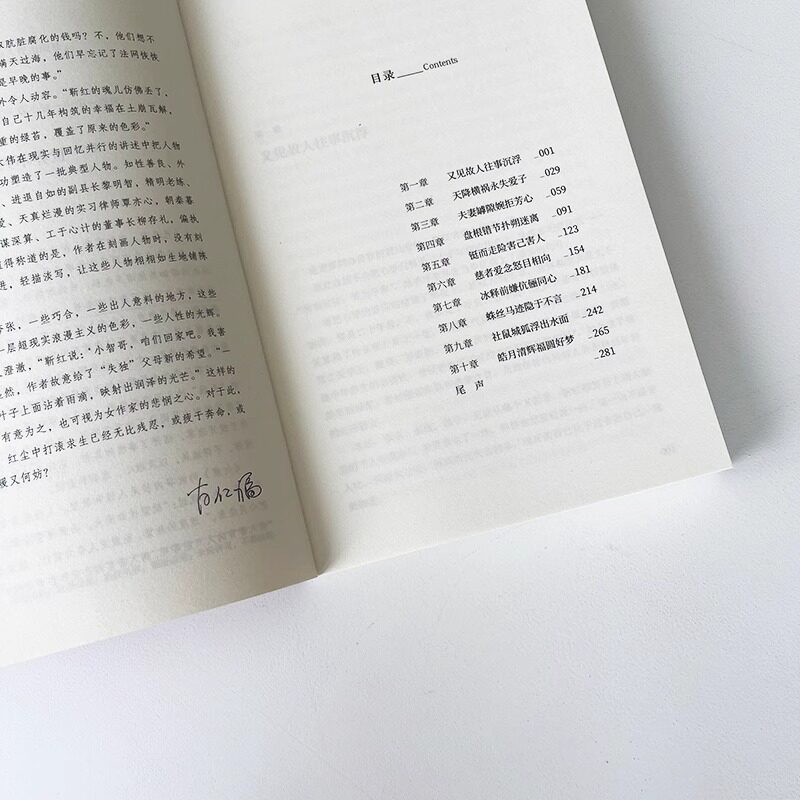 肮脏腐化的钱吗?不,他们想不
满天过海,他们早忘记了法网恢恢
是早晚的事。”
外令人动容。“靳红的魂儿仿佛丢了,
自己十几年构筑的幸福在土崩瓦解,
重的绿苔,覆盖了原来的色彩。”
大伟在现实与回忆并行的讲述中把人物
功塑造了一批典型人物。知性善良、外
、进退自如的副县长黎明智,精明老练、
爱、天真烂漫的实习律师覃亦心,朝秦暮
谋深算、工于心计的董事长柳存礼,偏执
值得称道的是,作者在刻画人物时,没有刻
进,轻描淡写,让这些人物相相如生地铺陈
夸张,一些巧合,一些出人意料的地方,这些
一层超现实浪漫主义的色彩,一些人性的光辉。
澄澈,“靳红说:‘小智哥,咱们回家吧。我害
然,作者故意给了“失独”父母新的希望。“一
叶子上面沾着雨滴,映射出润泽的光芒。”这样的
有意为之,也可视为女作家的悲悯之心。对于此,
红尘中打滚求生已经无比残忍,或疲于奔命,或
暖又何妨?
目录____Contents
第一章 又见故人往事沉浮 _001
第二章 天降横祸永失爱子 _029
第三章 夫妻罅隙婉拒芳心 _059
第四章 盘根错节扑朔迷离 _091
第五章 铤而走险害己害人 _123
第六章 慈者爱念怒目相向 _154
第七章 冰释前嫌伉俪同心 _181
第八章 蛛丝马迹隐于不言 _214
第九章 社鼠城狐浮出水面 _242
第十章 皓月清辉福圆好梦 _265
尾 声 _281